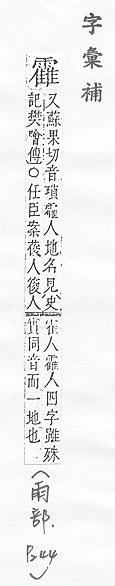 字彙補
靃
又蘇果切音瑣靃人地名見史
記樊噲傳○任臣案葰人後人
霍人靃人四字雖殊
實同音而一地也
(雨部.